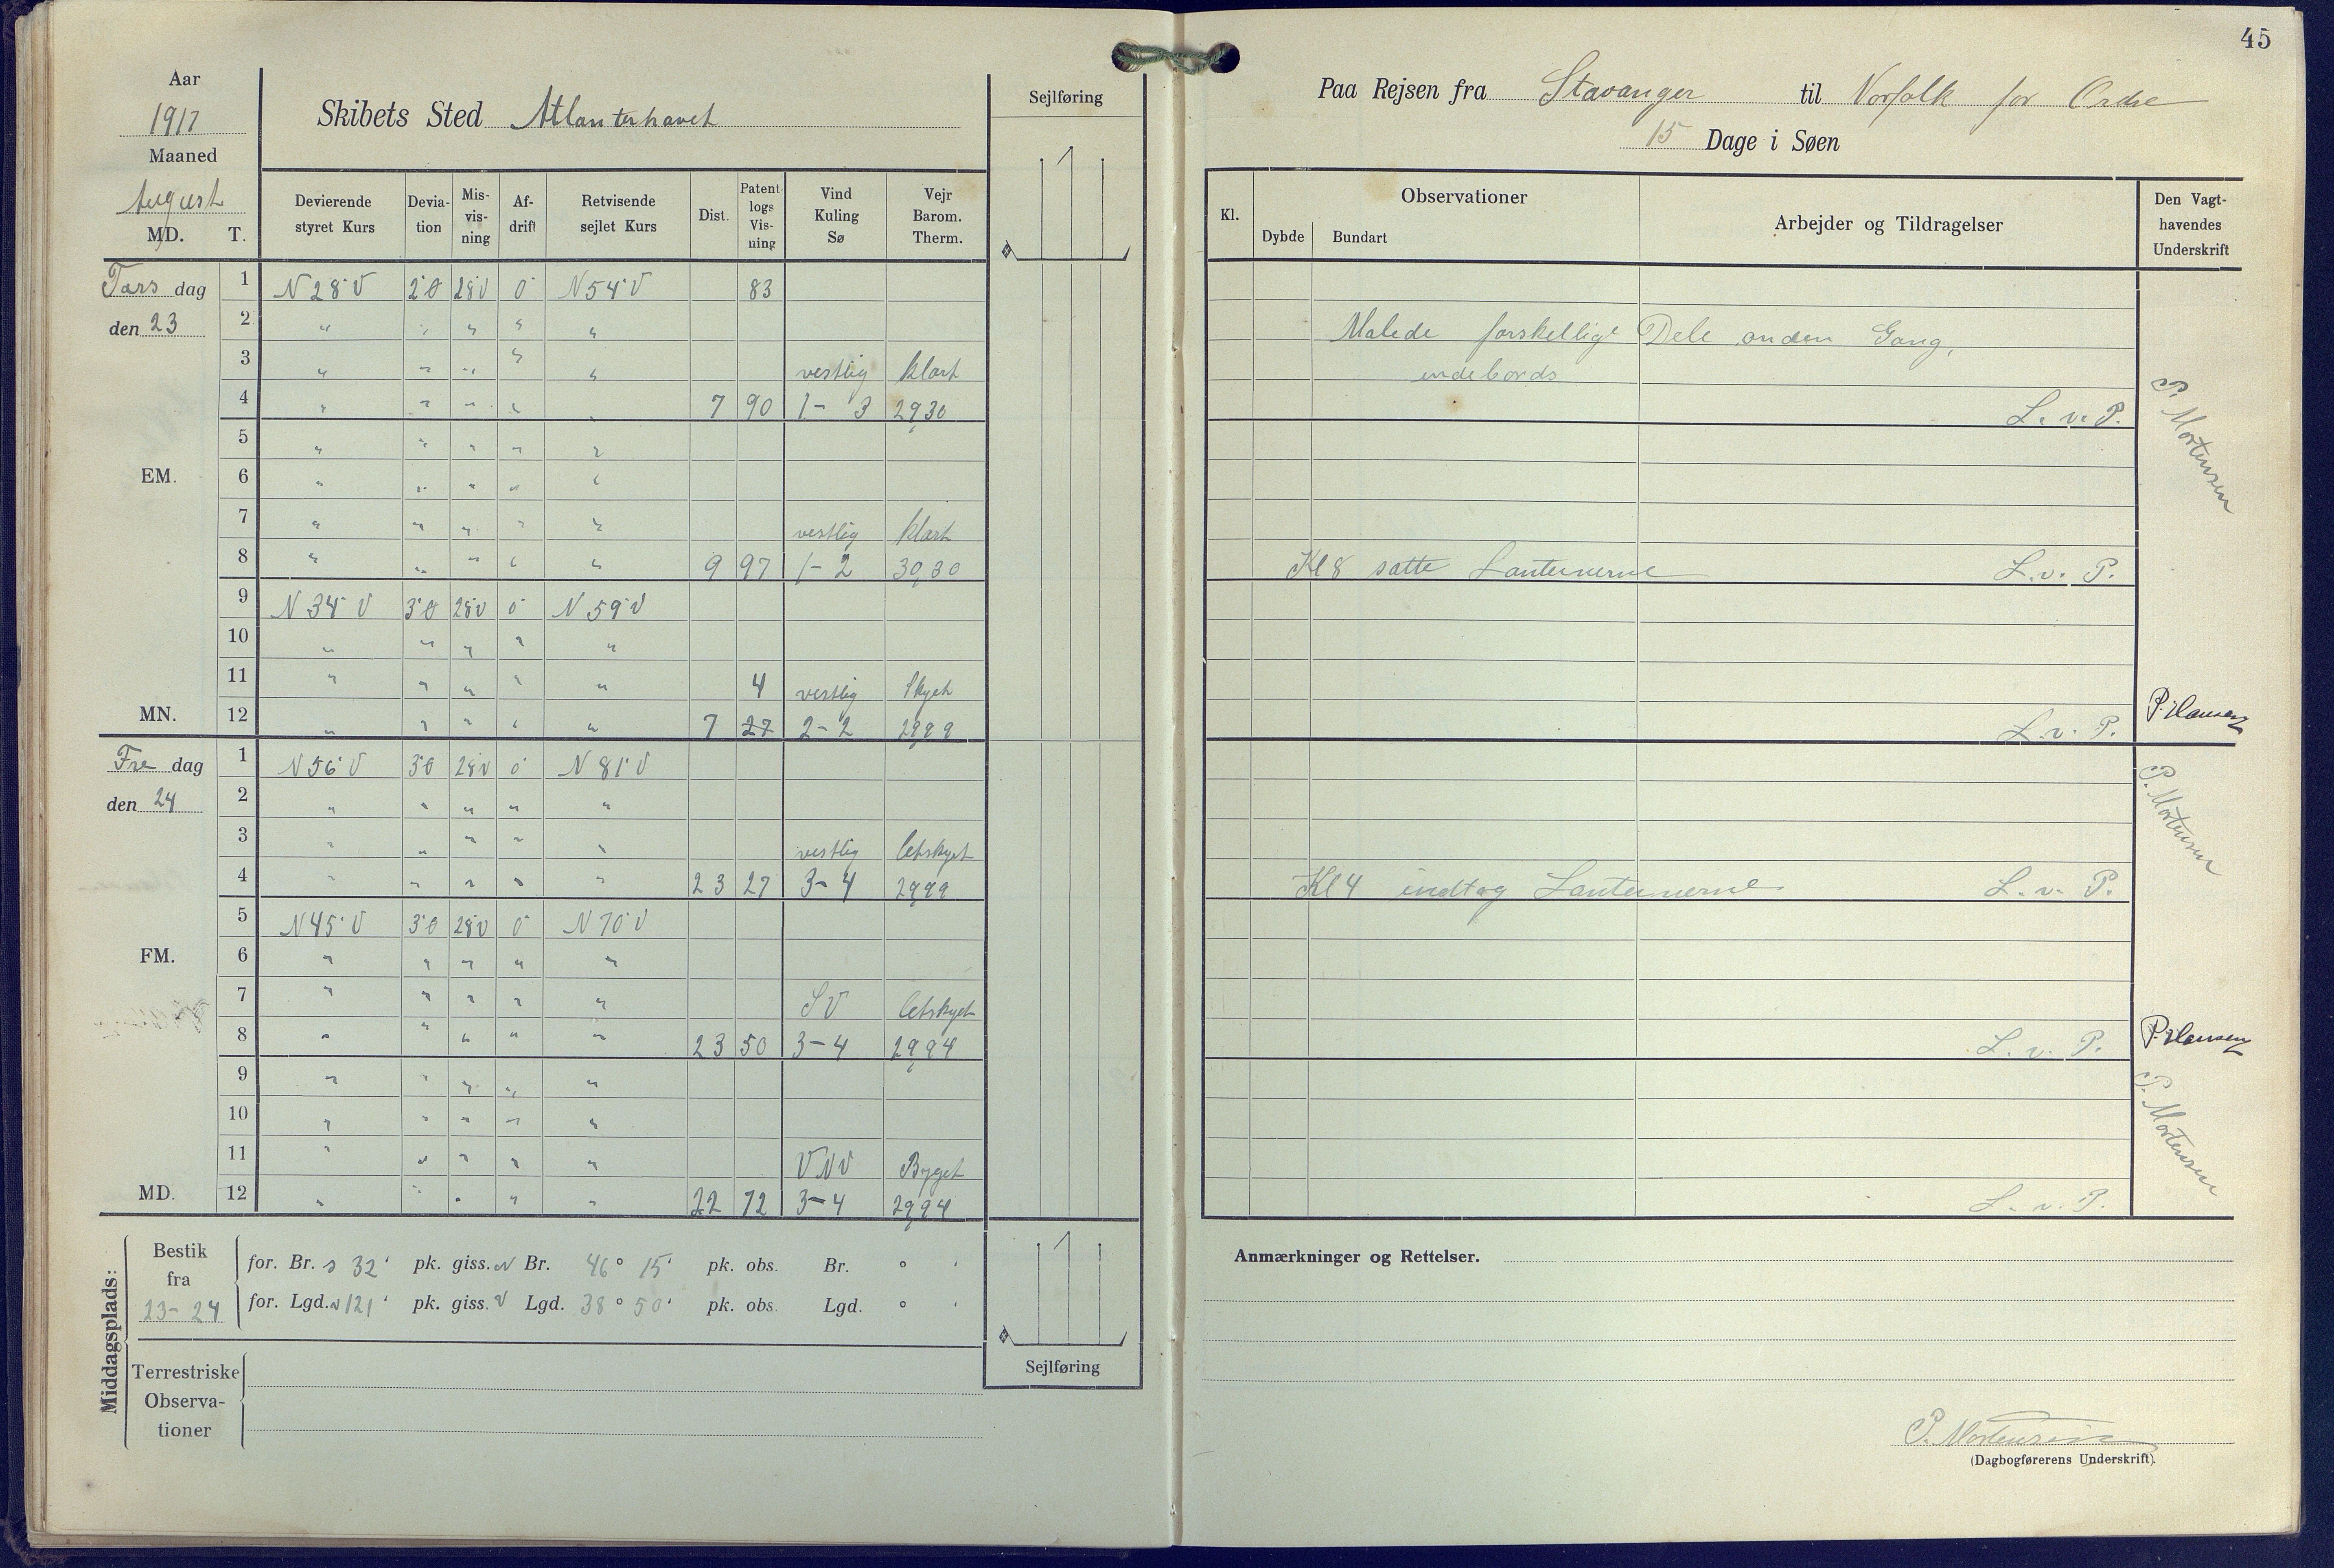 45
Aar
1917
Maaned
August
MD. T.
Skibets Sted Atlanterhavet
Sejlføring
Paa Rejsen fra Stavanger til Norfolk for Ordre
15 Dage i Søen
Devierende styret Kurs
Devia-tion
Mis-vis-ning
Af-drift
Retvisende sejlet Kurs
Dist.
Patent-logs Vis-ning
Vind Kuling Sø
Vejr Barom. Therm.
Kl.
Observationer
Dybde Bundart
Arbejder og Tildragelser
Den Vagt-havendes Underskrift
Tors dag 1 N 28° V 2°Ø 28V 0° N 54° V 83
den 23 2 " " " " "
Malede forskellige Dele anden Gang,
3 " " " " " vestlig klart
indebords
4 " " " " " 7 90 1 - 3 29,30
L. v. P.
P. Mortensen
5 " " " " "
EM. 6 " " " " "
7 " " " " " vestlig klart
8 " " " " " 9 97 1 - 2 30,30
Kl 8 satte Lanternerne L. v. P.
9 N 34° V 3°Ø 28V 0° N 59° V
10 " " " " "
11 " " " " " 4 vestlig Skyet
MN. 12 " " " " " 7 27 2 - 2 29,99
L. v. P. P. Hansen
Fre dag 1 N 56° V 3°Ø 28V 0° N 81° V
den 24 2 " " " " "
3 " " " " " vestlig letskyet
4 " " " " " 23 27 3 - 4 29,99
Kl 4 indtog Lanternerne L. v. P.
P. Mortensen
5 N 45° V 3°Ø 28V 0° N 70° V
FM. 6 " " " " "
7 " " " " " SV letskyet
8 " " " " " 23 50 3 - 4 29,94
L. v. P. P. Hansen
9 " " " " "
10 " " " " "
11 " " " " " VNV Byget
MD. 12 " " " " " 22 72 3 - 4 29,94
L. v. P.
P. Mortensen
Middagsplads:
Bestik fra 23 - 24
for. Br. S 32' pk. giss. N Br. 46° 15' pk. obs. Br. ° '
for. Lgd. V 121' pk. giss. V Lgd. 38° 50' pk. obs. Lgd. ° '
Terrestriske Observa-tioner
Sejlføring
Anmærkninger og Rettelser.
P. Mortensen
(Dagbogførerens Underskrift).